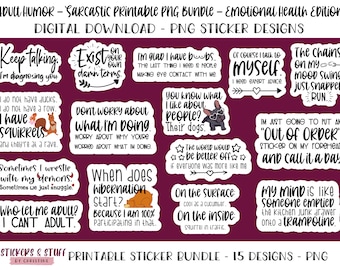 Adult Humor - Sarcastic Printable PNG Bundle - Emotional Health Edition
DIGITAL DOWNLOAD - PNG STICKER DESIGNS
Keep talking,
I'm diagnosing you
Exist on
your own
damn terms.
I'm glad I have b s
THE LAST THING I NEED IS PEOPLE
MAKING EYE CONTACT WITH ME
OF COURSE I TALK TO
MYSELF
I NEED EXPERT ADVICE
THE CHAINS
ON MY
MOOD SWING
JUST SNAPPED
RUN
I do not have ducks.
I do not have a row.
I HAVE
SQUIRRELS
and they're
Don't worry about
WHAT I'M DOING
WORRY ABOUT WHY YOU'RE
WORRIED ABOUT WHAT I'M DOING
YOU KNOW
WHAT I LIKE
ABOUT
PEOPLE?
Their dogs.
I'M JUST GOING TO PUT AN
"OUT OF ORDER"
STICKER ON MY FOREHEAD
AND CALL IT A DAY
The world would
BE BETTER OFF
Sometimes I wrestle
with my demons
Sometimes we just snuggle
When does
HIBERNATION
START?
BECAUSE I AM 100%
Participating in that.
ON THE SURFACE
COOL AS A CUCUMBER
ON THE INSIDE
MY MIND IS LIKE
SOMEONE EMPTIED
THE KITCHEN JUNK DRAWER
ONTO A
TRAMPOLINE
WHO LET ME ADULT?
I CAN'T ADULT.
STICKERS & STUFF
PRINTABLE STICKER BUNDLE - 15 DESIGNS - PNG